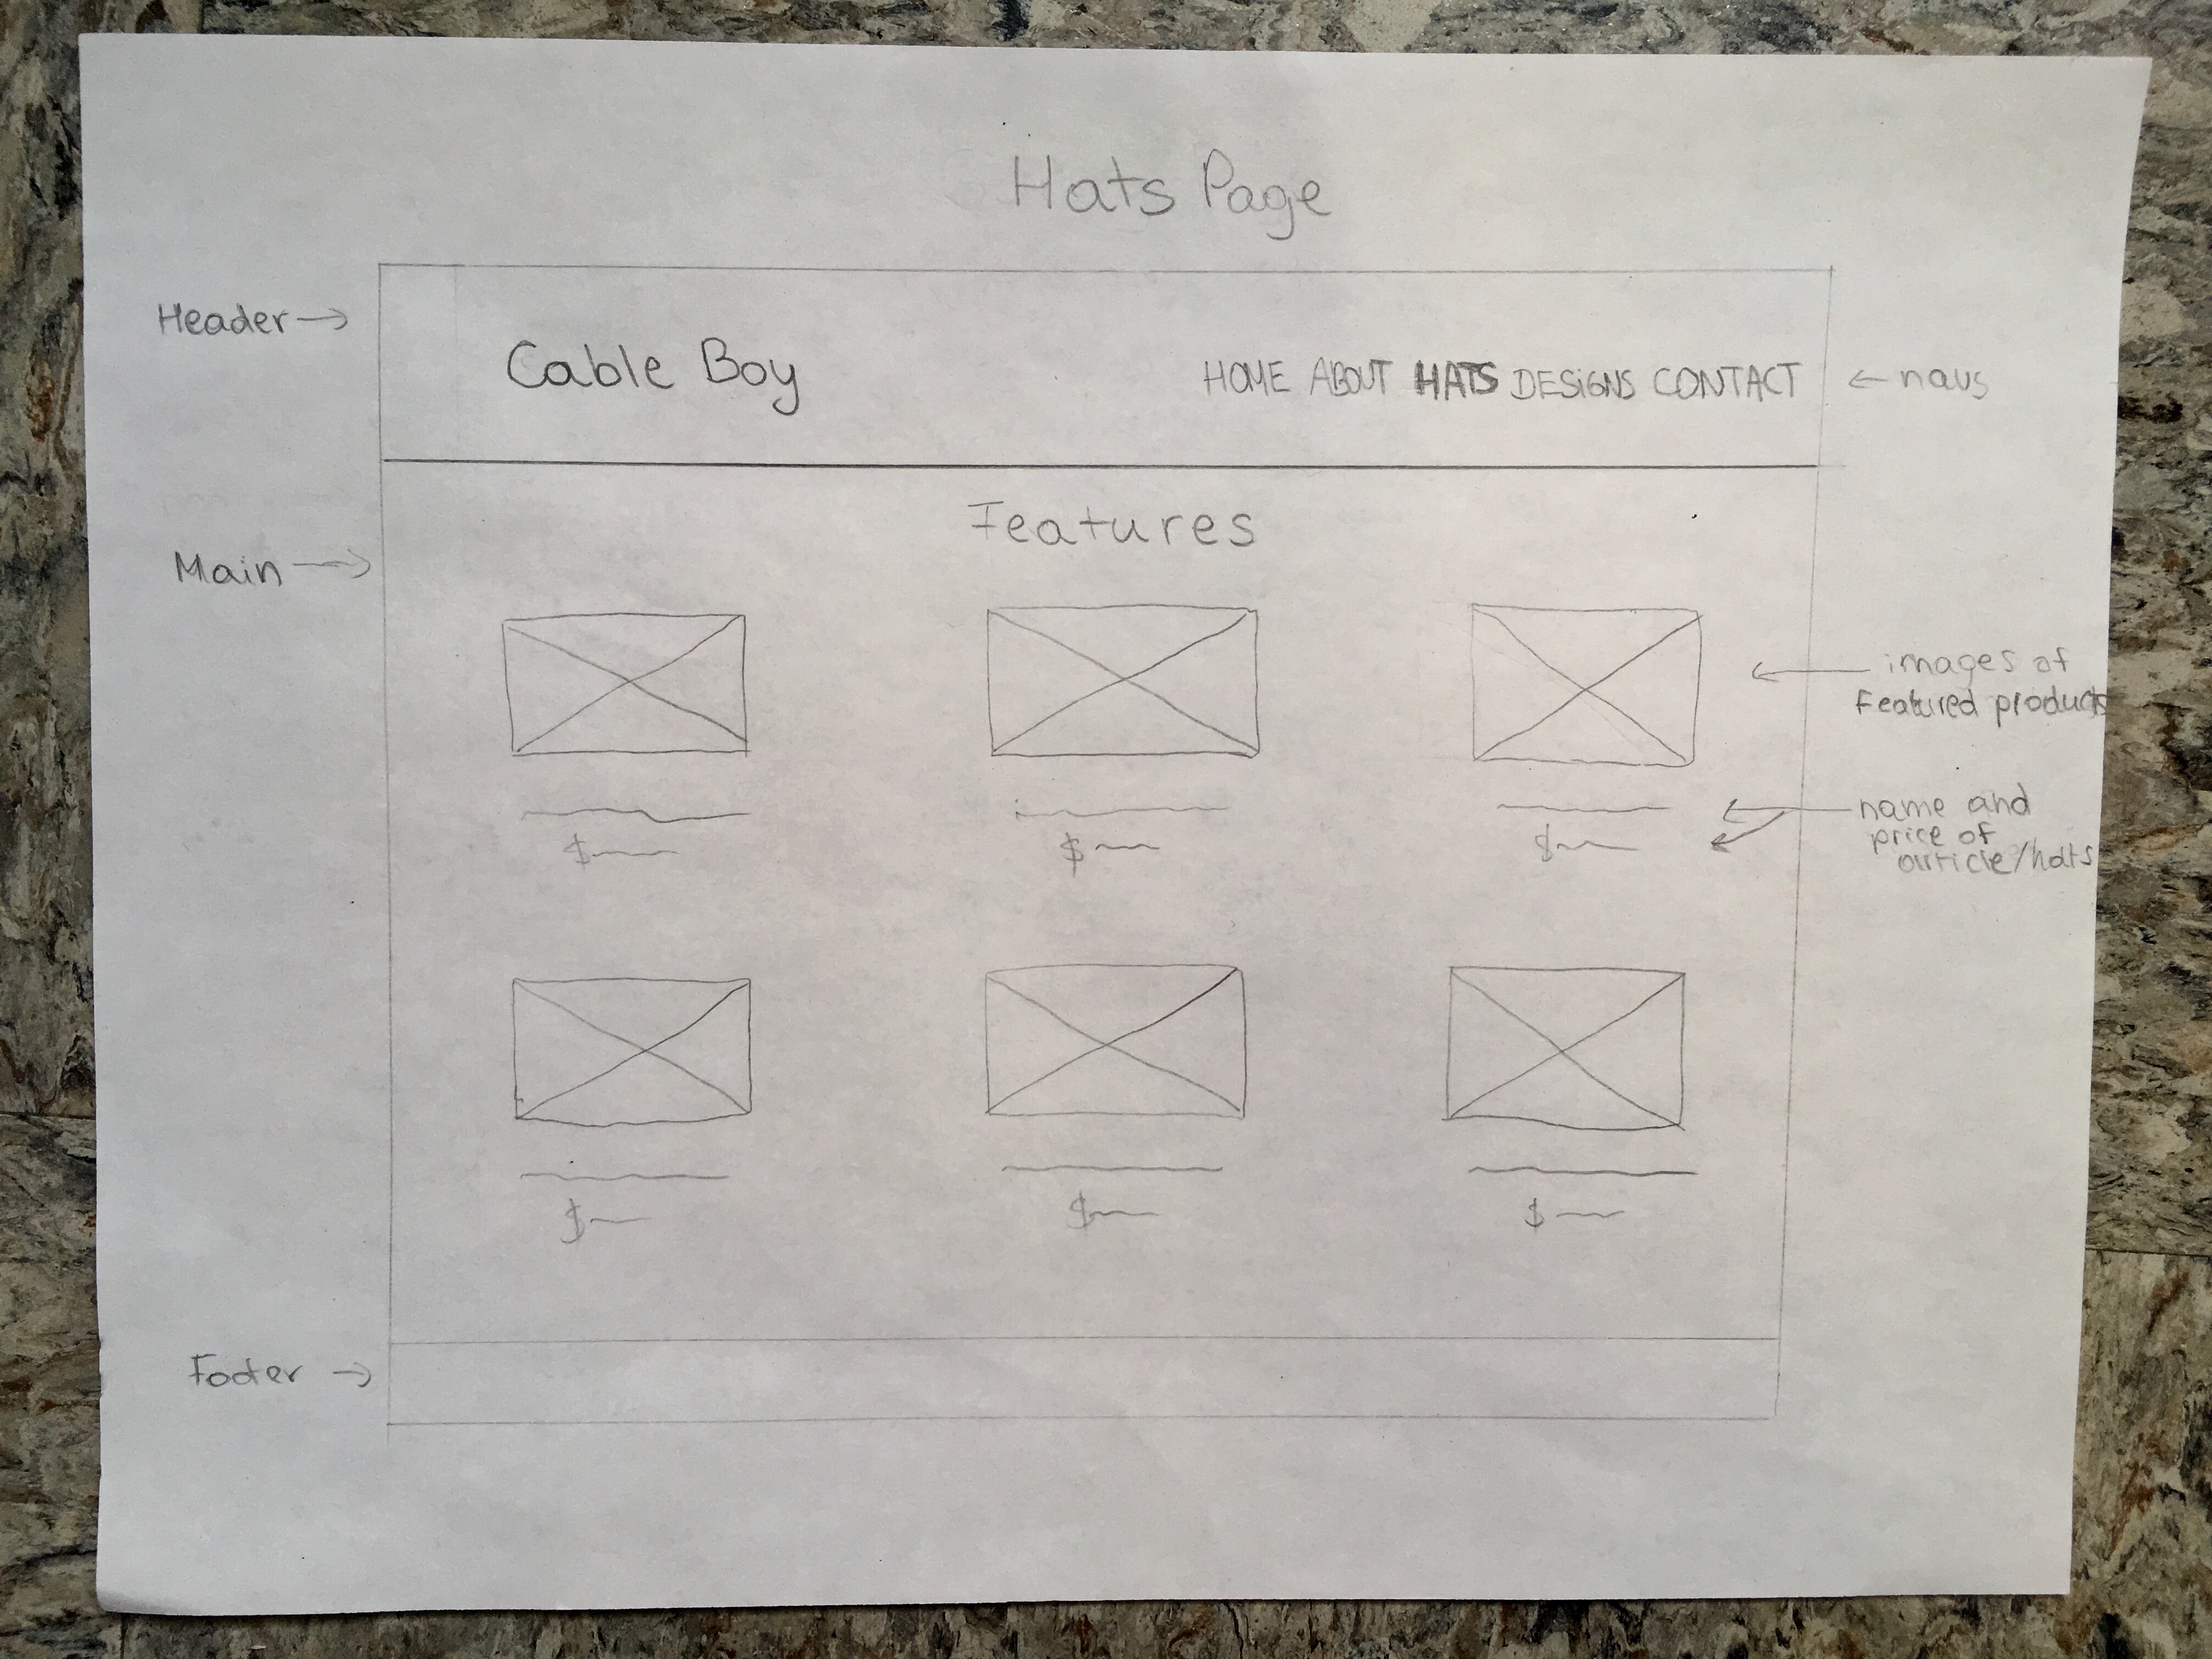 Hats Page
Header
Cable Boy
HOME ABOUT HATS DESIGNS CONTACT
navs
Features
Main
images of
Featured products
name and
price of
article/hats
$
$
$
$
$
$
Footer